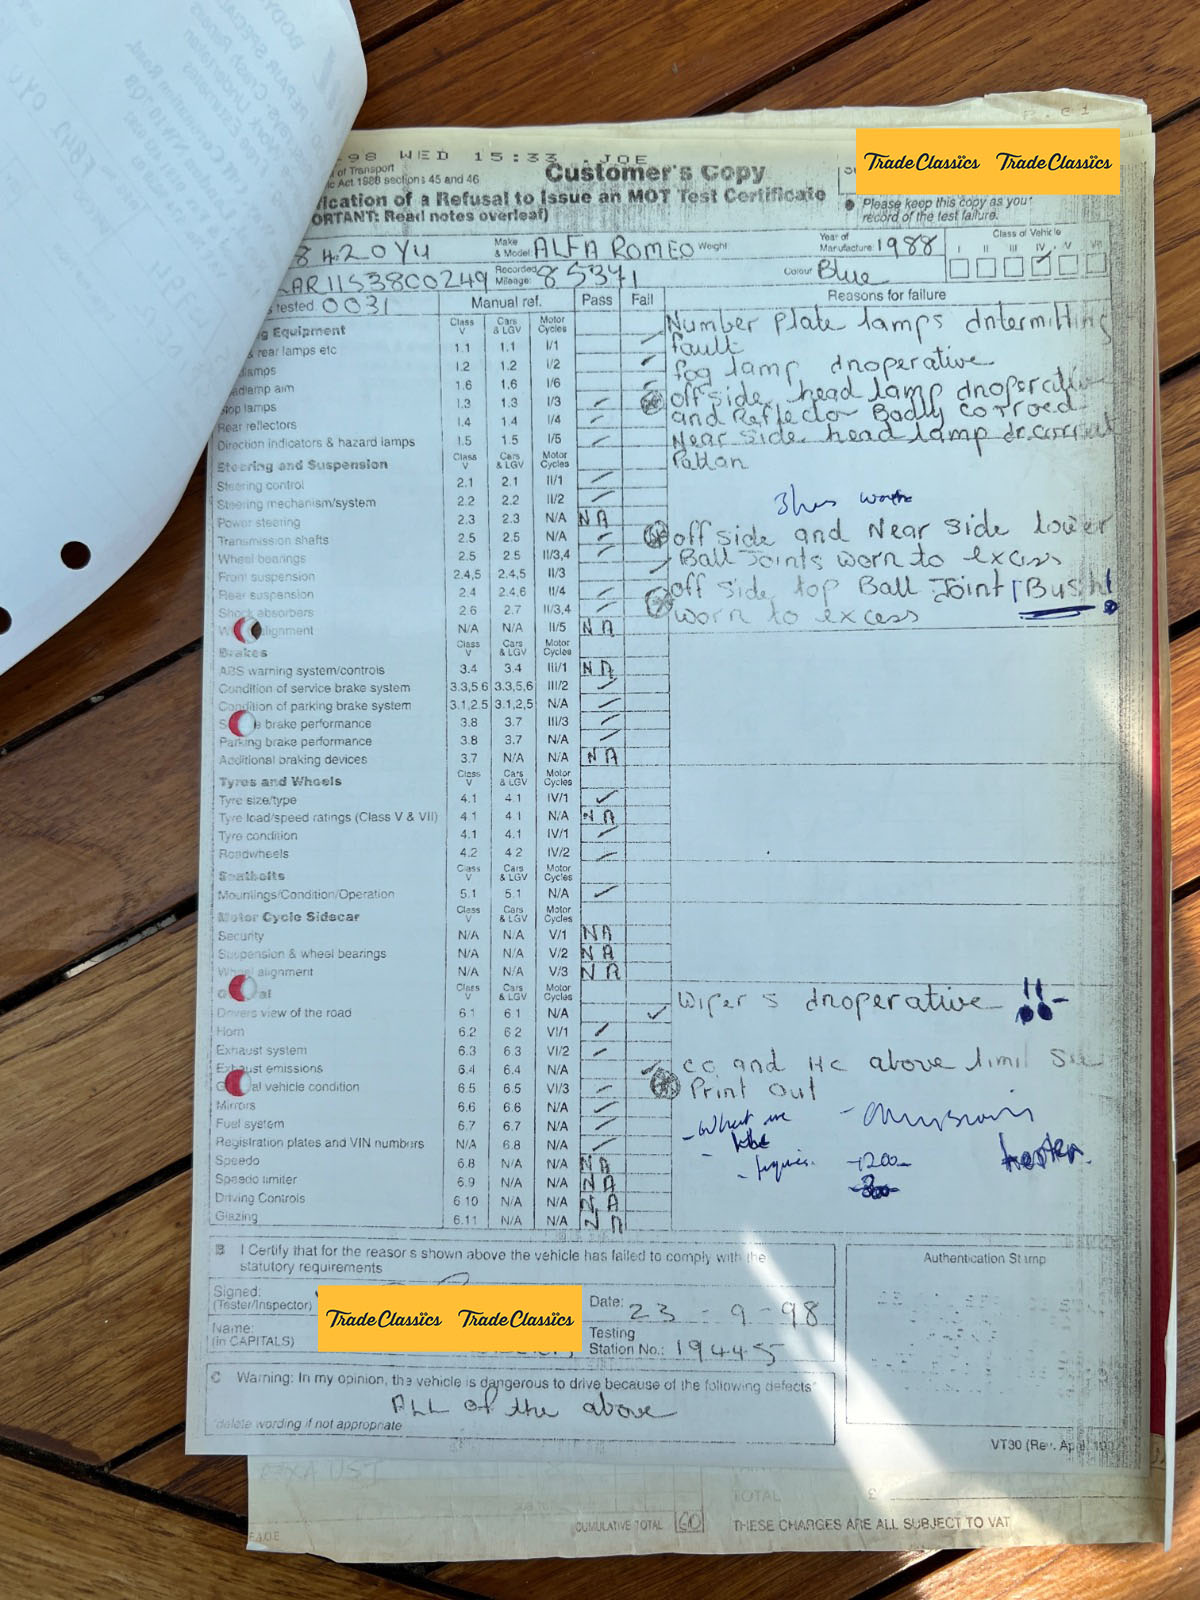 98 WED 15:33 JOE
of Transport
Act 1988 sections 45 and 46
Customer's Copy
ication of a Refusal to Issue an MOT Test Certificate
ORTANT: Read notes overleaf)
TradeClassics TradeClassics
Please keep this copy as your
record of the test failure.
842OYU
Make & Model ALFA ROMEO
Weight
Year of Manufacture 1988
Class of Vehicle
I II III IV V VII
AR11538C0249
Recorded Mileage: 85371
Colour Blue
tested. 0031
Manual ref. Pass Fail
Reasons for failure
g Equipment Class V Cars & LGV Motor Cycles
& rear lamps etc 1.1 1.1 I/1
lamps 1.2 1.2 I/2
adlamp aim 1.6 1.6 I/6
top lamps 1.3 1.3 I/3
Rear reflectors 1.4 1.4 I/4
Direction indicators & hazard lamps 1.5 1.5 I/5
Number Plate lamps Intermitting
fault
fog lamp Inoperative
off side head lamp Inoperative
and Reflector Badly corroed
Near Side head lamp Incorrect
Pattan
Steering and Suspension Class V Cars & LGV Motor Cycles
Steering control 2.1 2.1 II/1
Steering mechanism/system 2.2 2.2 II/2
Power steering 2.3 2.3 N/A NA
Transmission shafts 2.5 2.5 N/A
Wheel bearings 2.5 2.5 II/3,4
Front suspension 2.4,5 2.4,5 II/3
Rear suspension 2.4 2.4,6 II/4
Shock absorbers 2.6 2.7 II/3,4
W lignment N/A N/A II/5 NA
3hrs work
off side and Near side lower
Ball Joints worn to excess
off side top Ball Joint / Bush!
worn to excess
Brakes Class V Cars & LGV Motor Cycles
ABS warning system/controls 3.4 3.4 III/1 NA
Condition of service brake system 3.3,5,6 3.3,5,6 III/2
Condition of parking brake system 3.1,2,5 3.1,2,5 N/A
S brake performance 3.8 3.7 III/3
Parking brake performance 3.8 3.7 N/A
Additional braking devices 3.7 N/A N/A NA
Tyres and Wheels Class V Cars & LGV Motor Cycles
Tyre size/type 4.1 4.1 IV/1
Tyre load/speed ratings (Class V & VII) 4.1 4.1 N/A NA
Tyre condition 4.1 4.1 IV/1
Roadwheels 4.2 4.2 IV/2
Seatbelts Class V Cars & LGV Motor Cycles
Mountings/Condition/Operation 5.1 5.1 N/A
Motor Cycle Sidecar Class V Cars & LGV Motor Cycles
Security N/A N/A V/1 NA
Suspension & wheel bearings N/A N/A V/2 NA
Wheel alignment N/A N/A V/3 NA
G al Class V Cars & LGV Motor Cycles
Drivers view of the road 6.1 6.1 N/A
Horn 6.2 6.2 VI/1
Exhaust system 6.3 6.3 VI/2
Exhaust emissions 6.4 6.4 N/A
G al vehicle condition 6.5 6.5 VI/3
Mirrors 6.6 6.6 N/A
Fuel system 6.7 6.7 N/A
Registration plates and VIN numbers N/A 6.8 N/A
Speedo 6.8 N/A N/A NA
Speedo limiter 6.9 N/A N/A NA
Driving Controls 6.10 N/A N/A NA
Glazing 6.11 N/A N/A NA
Wipers Inoperative !!-
CO and HC above limit See
Print Out
- What are
- the
- figures.
1200
tester.
B I Certify that for the reasons shown above the vehicle has failed to comply with the
statutory requirements
Signed:
(Tester/Inspector)
TradeClassics TradeClassics
Date: 23 - 9 - 98
Name:
(in CAPITALS)
Testing
Station No.: 19445
Authentication Stamp
C Warning: In my opinion, the vehicle is dangerous to drive because of the following defects*
ALL of the above
*delete wording if not appropriate
VT30 (Rev. Ap
TOTAL £
CUMULATIVE TOTAL 60
THESE CHARGES ARE ALL SUBJECT TO VAT